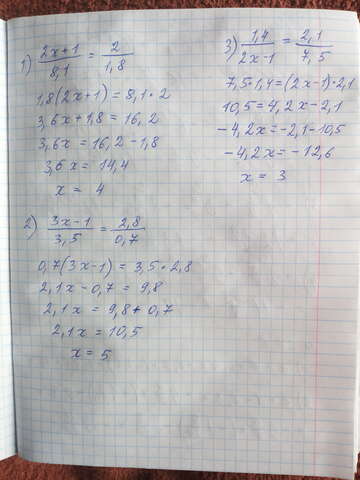 1) (2x+1)/8,1 = 2/1,8
1,8(2x+1) = 8,1·2
3,6x+1,8 = 16,2
3,6x = 16,2-1,8
3,6x = 14,4
x = 4
2) (3x-1)/3,5 = 2,8/0,7
0,7(3x-1) = 3,5·2,8
2,1x-0,7 = 9,8
2,1x = 9,8+0,7
2,1x = 10,5
x = 5
3) 1,4/(2x-1) = 2,1/7,5
7,5·1,4=(2x-1)·2,1
10,5=4,2x-2,1
-4,2x=-2,1-10,5
-4,2x=-12,6
x = 3